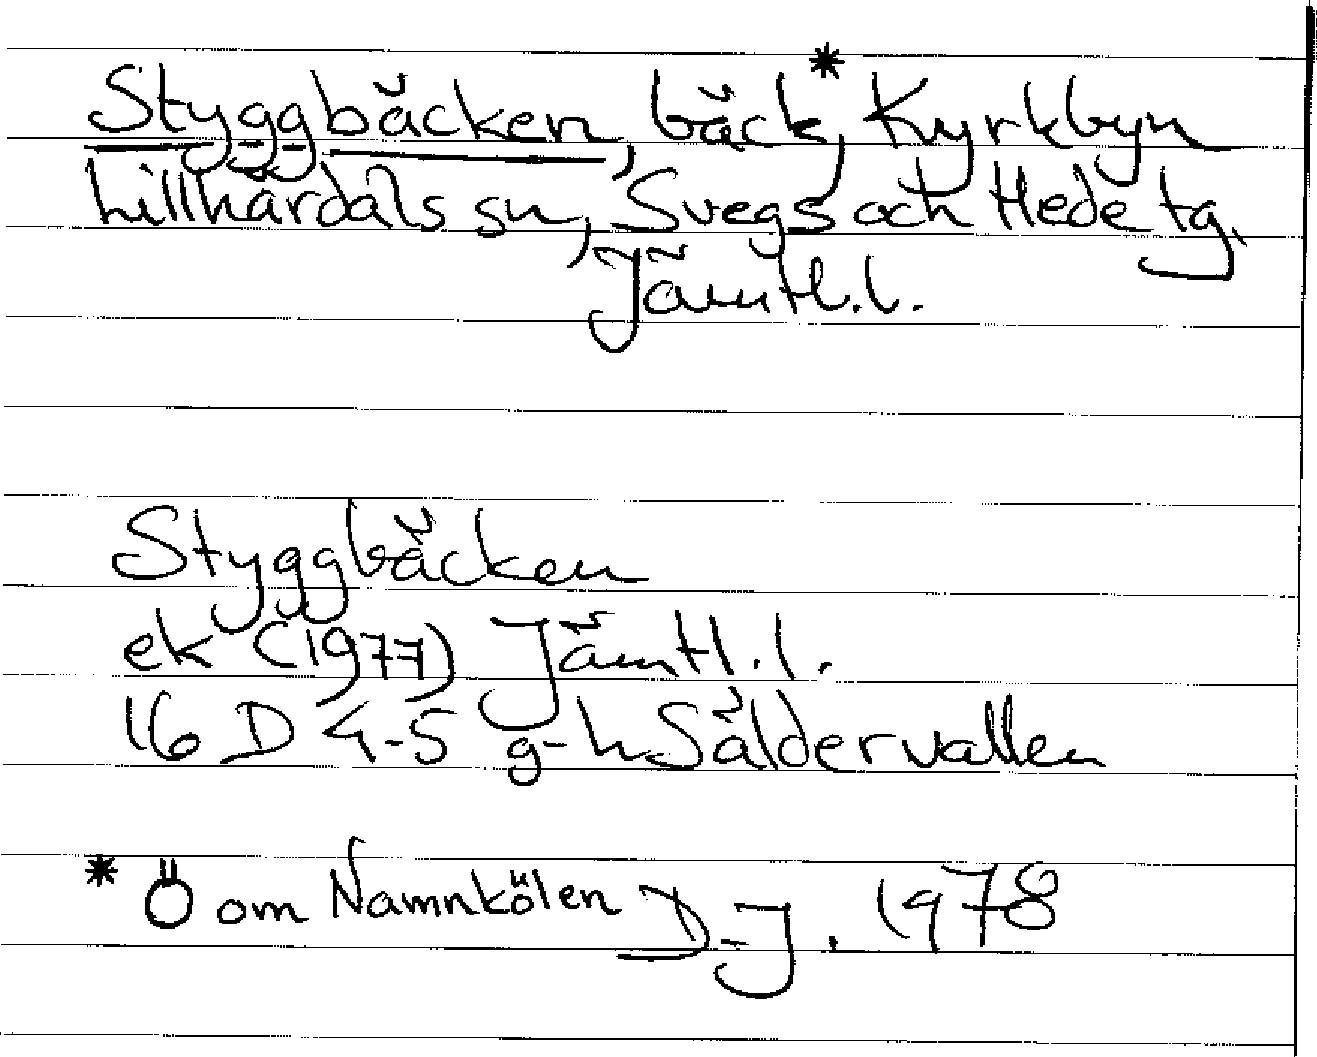 Styggbäcken, bäck*, Kyrkbyn
Lillhärdals sn, Svegs och Hede tg,
Jämtl.l.
Styggbäcken
ek (1977) Jämtl.l.
16 D 4-5 g-h Säldervallen
* Ö om Namnkölen D-J. 1978